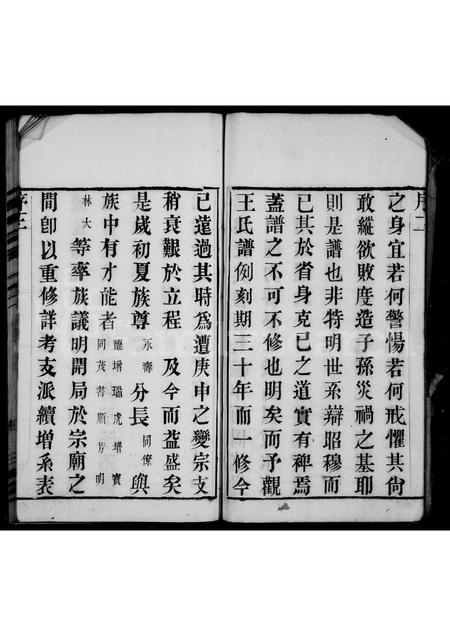 序二
之身宜若何警惕若何戒懼其尙
敢縱欲敗度造子孫災禍之基耶
則是譜也非特明世系辯昭穆而
已其於省身克己之道實有裨焉
蓋譜之不可不修也明矣而予觀
王氏譜例刻期三十年而一修今
已遠過其時爲遭庚申之變宗支
稍衰艱於立程 及今而益盛矣
是歲初夏族尊永壽分長同條與
族中有才能者龍增瑞虎增寶同茂書順芳明
林大等率族議明開局於宗廟之
間卽以重修詳考支派續增系表
序三